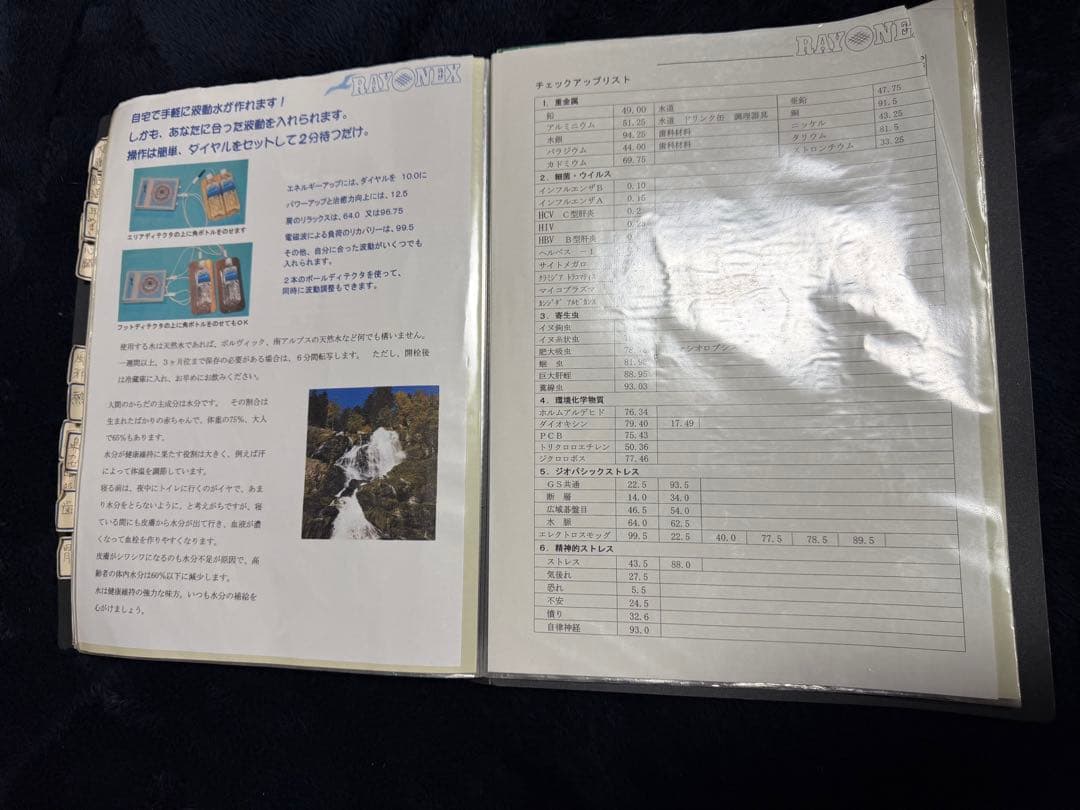 RAYONEX
自宅で手軽に波動水が作れます！
しかも、あなたに合った波動を入れられます。
操作は簡単、ダイヤルをセットして２分待つだけ。
エリアディテクタの上に角ボトルをのせます
フットディテクタの上に角ボトルをのせてもOK
エネルギーアップには、ダイヤルを 10.0に
パワーアップと治癒力向上には、12.5
肩のリラックスは、64.0 又は96.75
電磁波による負荷のリカバリーは、99.5
その他、自分に合った波動がいくつでも
入れられます。
２本のボールディテクタを使って、
同時に波動調整もできます。
使用する水は天然水であれば、ボルヴィック、南アルプスの天然水など何でも構いません。
一週間以上、３ヶ月位まで保存の必要がある場合は、６分間転写します。 ただし、開栓後
は冷蔵庫に入れ、お早めにお飲みください。
人間のからだの主成分は水分です。 その割合は
生まれたばかりの赤ちゃんで、体重の75％、大人
で65％もあります。
水分が健康維持に果たす役割は大きく、例えば汗
によって体温を調節しています。
寝る前は、夜中にトイレに行くのがイヤで、あま
り水分をとらないように、と考えがちですが、寝
ている間にも皮膚から水分が出て行き、血液が濃
くなって血栓を作りやすくなります。
皮膚がシワシワになるのも水分不足が原因で、高
齢者の体内水分は60％以下に減少します。
水は健康維持の強力な味方。いつも水分の補給を
心がけましょう。
RAYONE
チェックアップリスト
1. 重金属
鉛 49.00 水道 亜鉛 47.75
アルミニウム 51.25 水道 ドリンク缶 調理器具 銅 91.5
水銀 94.25 歯科材料 ニッケル 43.25
パラジウム 44.00 歯科材料 タリウム 81.5
カドミウム 69.75 ストロンチウム 33.25
2. 細菌・ウイルス
インフルエンザB 0.10
インフルエンザA 0.15
HCV C型肝炎 0.2
HIV 0.25
HBV B型肝炎
ヘルペス
サイトメガロ
クラミジア トラコマティス
マイコプラズマ
カンジダ アルビカンス
3. 寄生虫
イヌ鉤虫
イヌ糸状虫
肥大吸虫 78.
蛔 虫 81.
巨大肝蛭 88.95
糞線虫 93.03
4. 環境化学物質
ホルムアルデヒド 76.34
ダイオキシン 79.40 17.49
PCB 75.43
トリクロロエチレン 50.36
ジクロロボス 77.46
5. ジオパシックストレス
GS共通 22.5 93.5
断 層 14.0 34.0
広域碁盤目 46.5 54.0
水 脈 64.0 62.5
エレクトロスモッグ 99.5 22.5 40.0 77.5 78.5 89.5
6. 精神的ストレス
ストレス 43.5 88.0
気後れ 27.5
恐れ 5.5
不安 24.5
憤り 32.6
自律神経 93.0